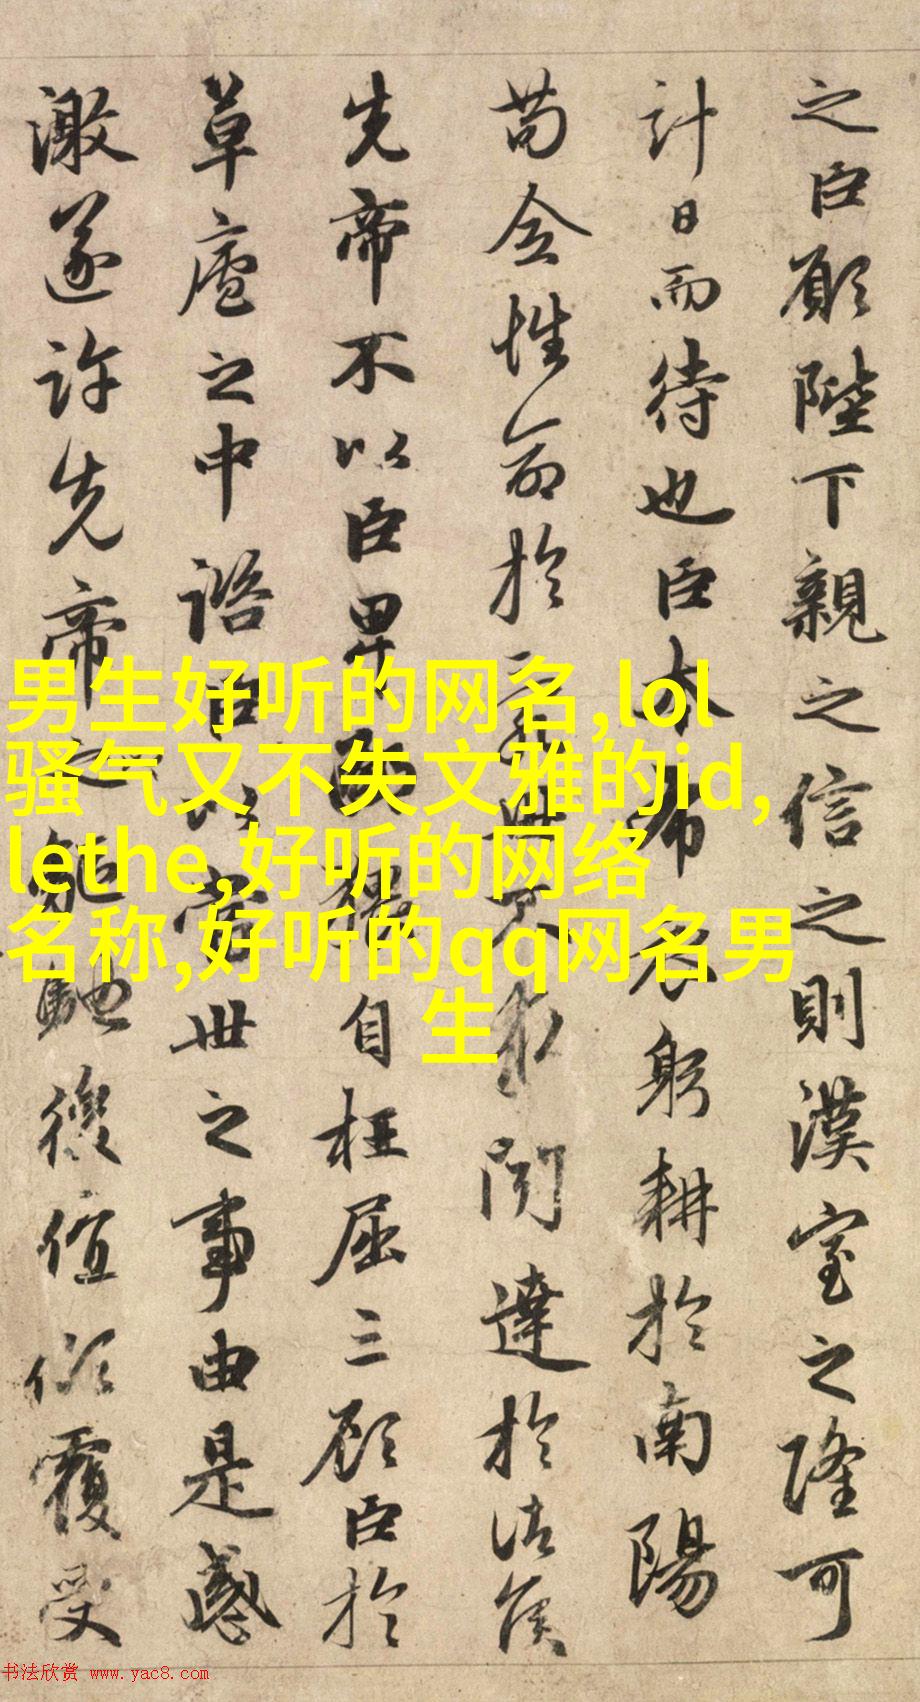 之臣願陛下親之信之則漢室之隆可
計日而待也臣本布衣躬耕於南陽
苟全性命於亂世不求聞達於諸侯
先帝不以臣卑鄙猥自枉屈三顧臣於
草廬之中諮臣以當世之事由是感
激遂許先帝之驅馳後值傾覆受
男生好听的网名,lol
骚气又不失文雅的id,
lethe,好听的网络
名称,好听的qq网名男
生
书法欣赏 www.yac8.com